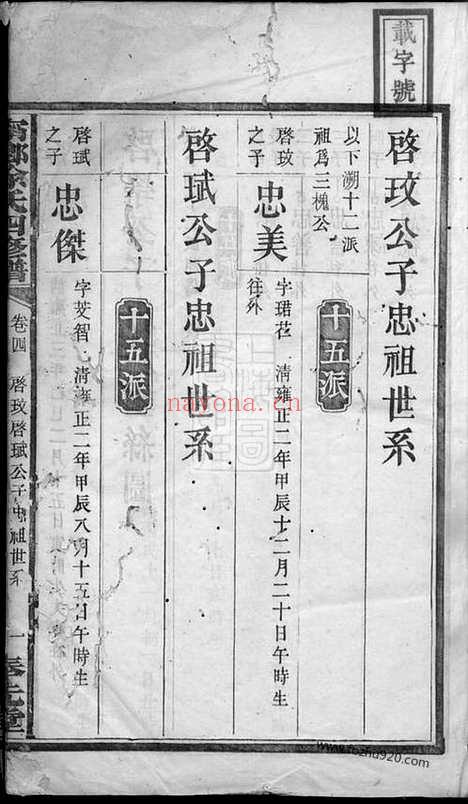 載字號
啓玟公子忠祖世系
以下溯十二派
祖爲三槐公
十五派
啓玟
之子
忠美
字珺茳 清雍正二年甲辰十二月二十日午時生
往外
啓珷公子忠祖世系
十五派
啓珷
之子
忠傑
字芆智 清雍正二年甲辰八月十五日午時生
甯鄉涂氏四修譜
卷四
啓玟啓珷公子忠祖世系
一
nayona.cn
www.fozhu920.com